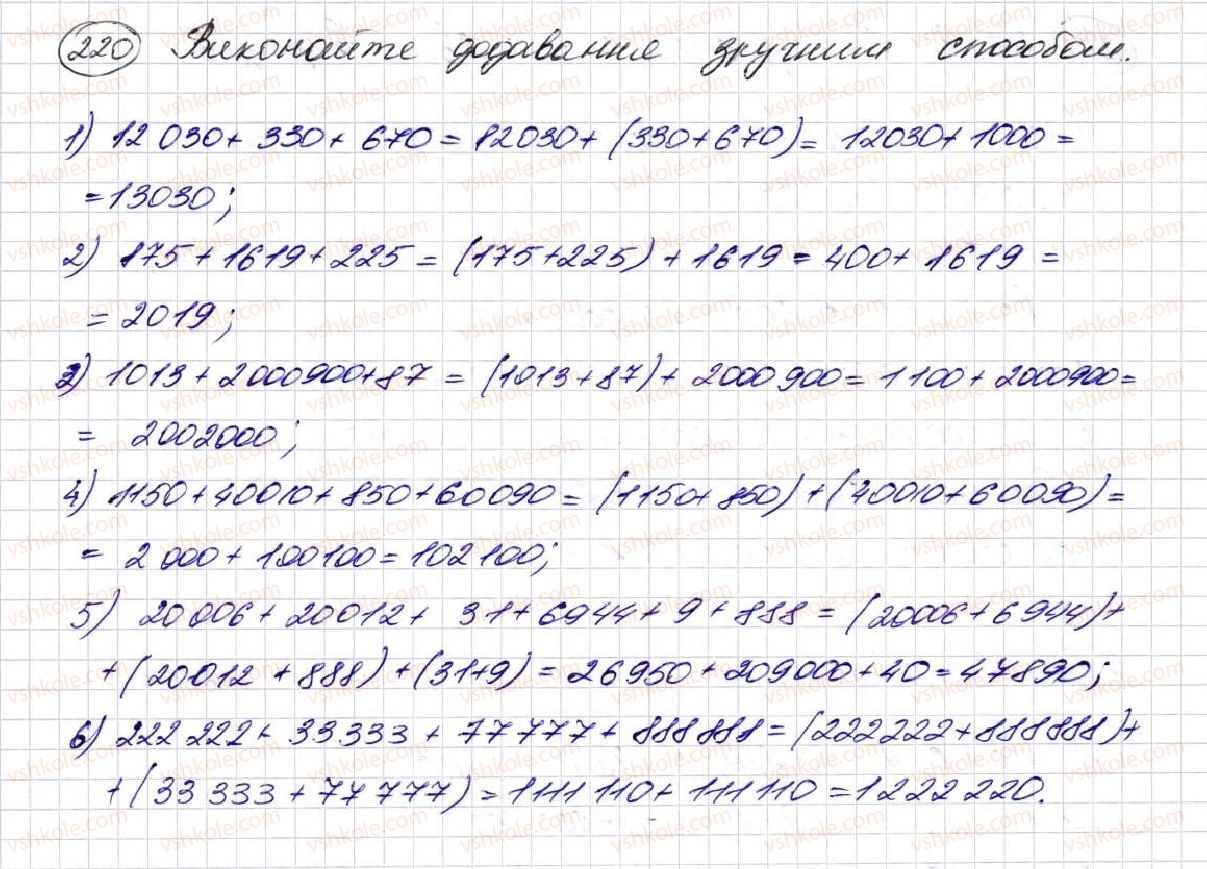 220 Виконайте додавання зручним способом.
1) 12 030 + 330 + 670 = 12030 + (330 + 670) = 12030 + 1000 =
= 13030;
2) 175 + 1619 + 225 = (175 + 225) + 1619 = 400 + 1619 =
= 2019;
3) 1013 + 2000900 + 87 = (1013 + 87) + 2000 900 = 1 100 + 2000900 =
= 2002000;
4) 1150 + 40010 + 850 + 60090 = (1150 + 850) + (40010 + 60090) =
= 2 000 + 100 100 = 102 100;
5) 20 006 + 20012 + 31 + 6944 + 9 + 888 = (20006 + 6 944) +
+ (20012 + 888) + (31+9) = 26950 + 209000 + 40 = 47890;
6) 222 222 + 33 333 + 77 777 + 888 888 = (222222 + 888888) +
+ (33 333 + 77 777) = 1111 110 + 111 110 = 1 222 220.